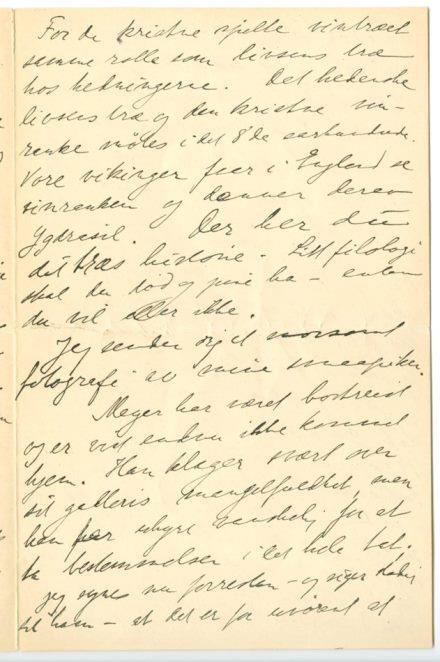 For de kristne spille vintræet
samme rolle som livsens træ
hos hedningerne. Det hedenske
livsens træ og den kristne vin-
ranke møtes i det 8'de aarhundrede.
Vore vikinger faar i England se
vinranken og danner derav
Ygdrasil. Der har du
dit træs historie. Litt filologi
skal du død og pine ha – enten
du vil eller ikke.
Jeg sender dig et morsomt
fotografi av mine smaapiker.
Meyer har været bortreist
og er vist endnu ikke kommet
hjem. Han klager svært over
sit galleris mangelfuldhet, men
han har uhyre vanskelig for at
ta bestemmelser i det hele tat.
Jeg synes nu forresten – og siger stadig
til ham – at det er for at